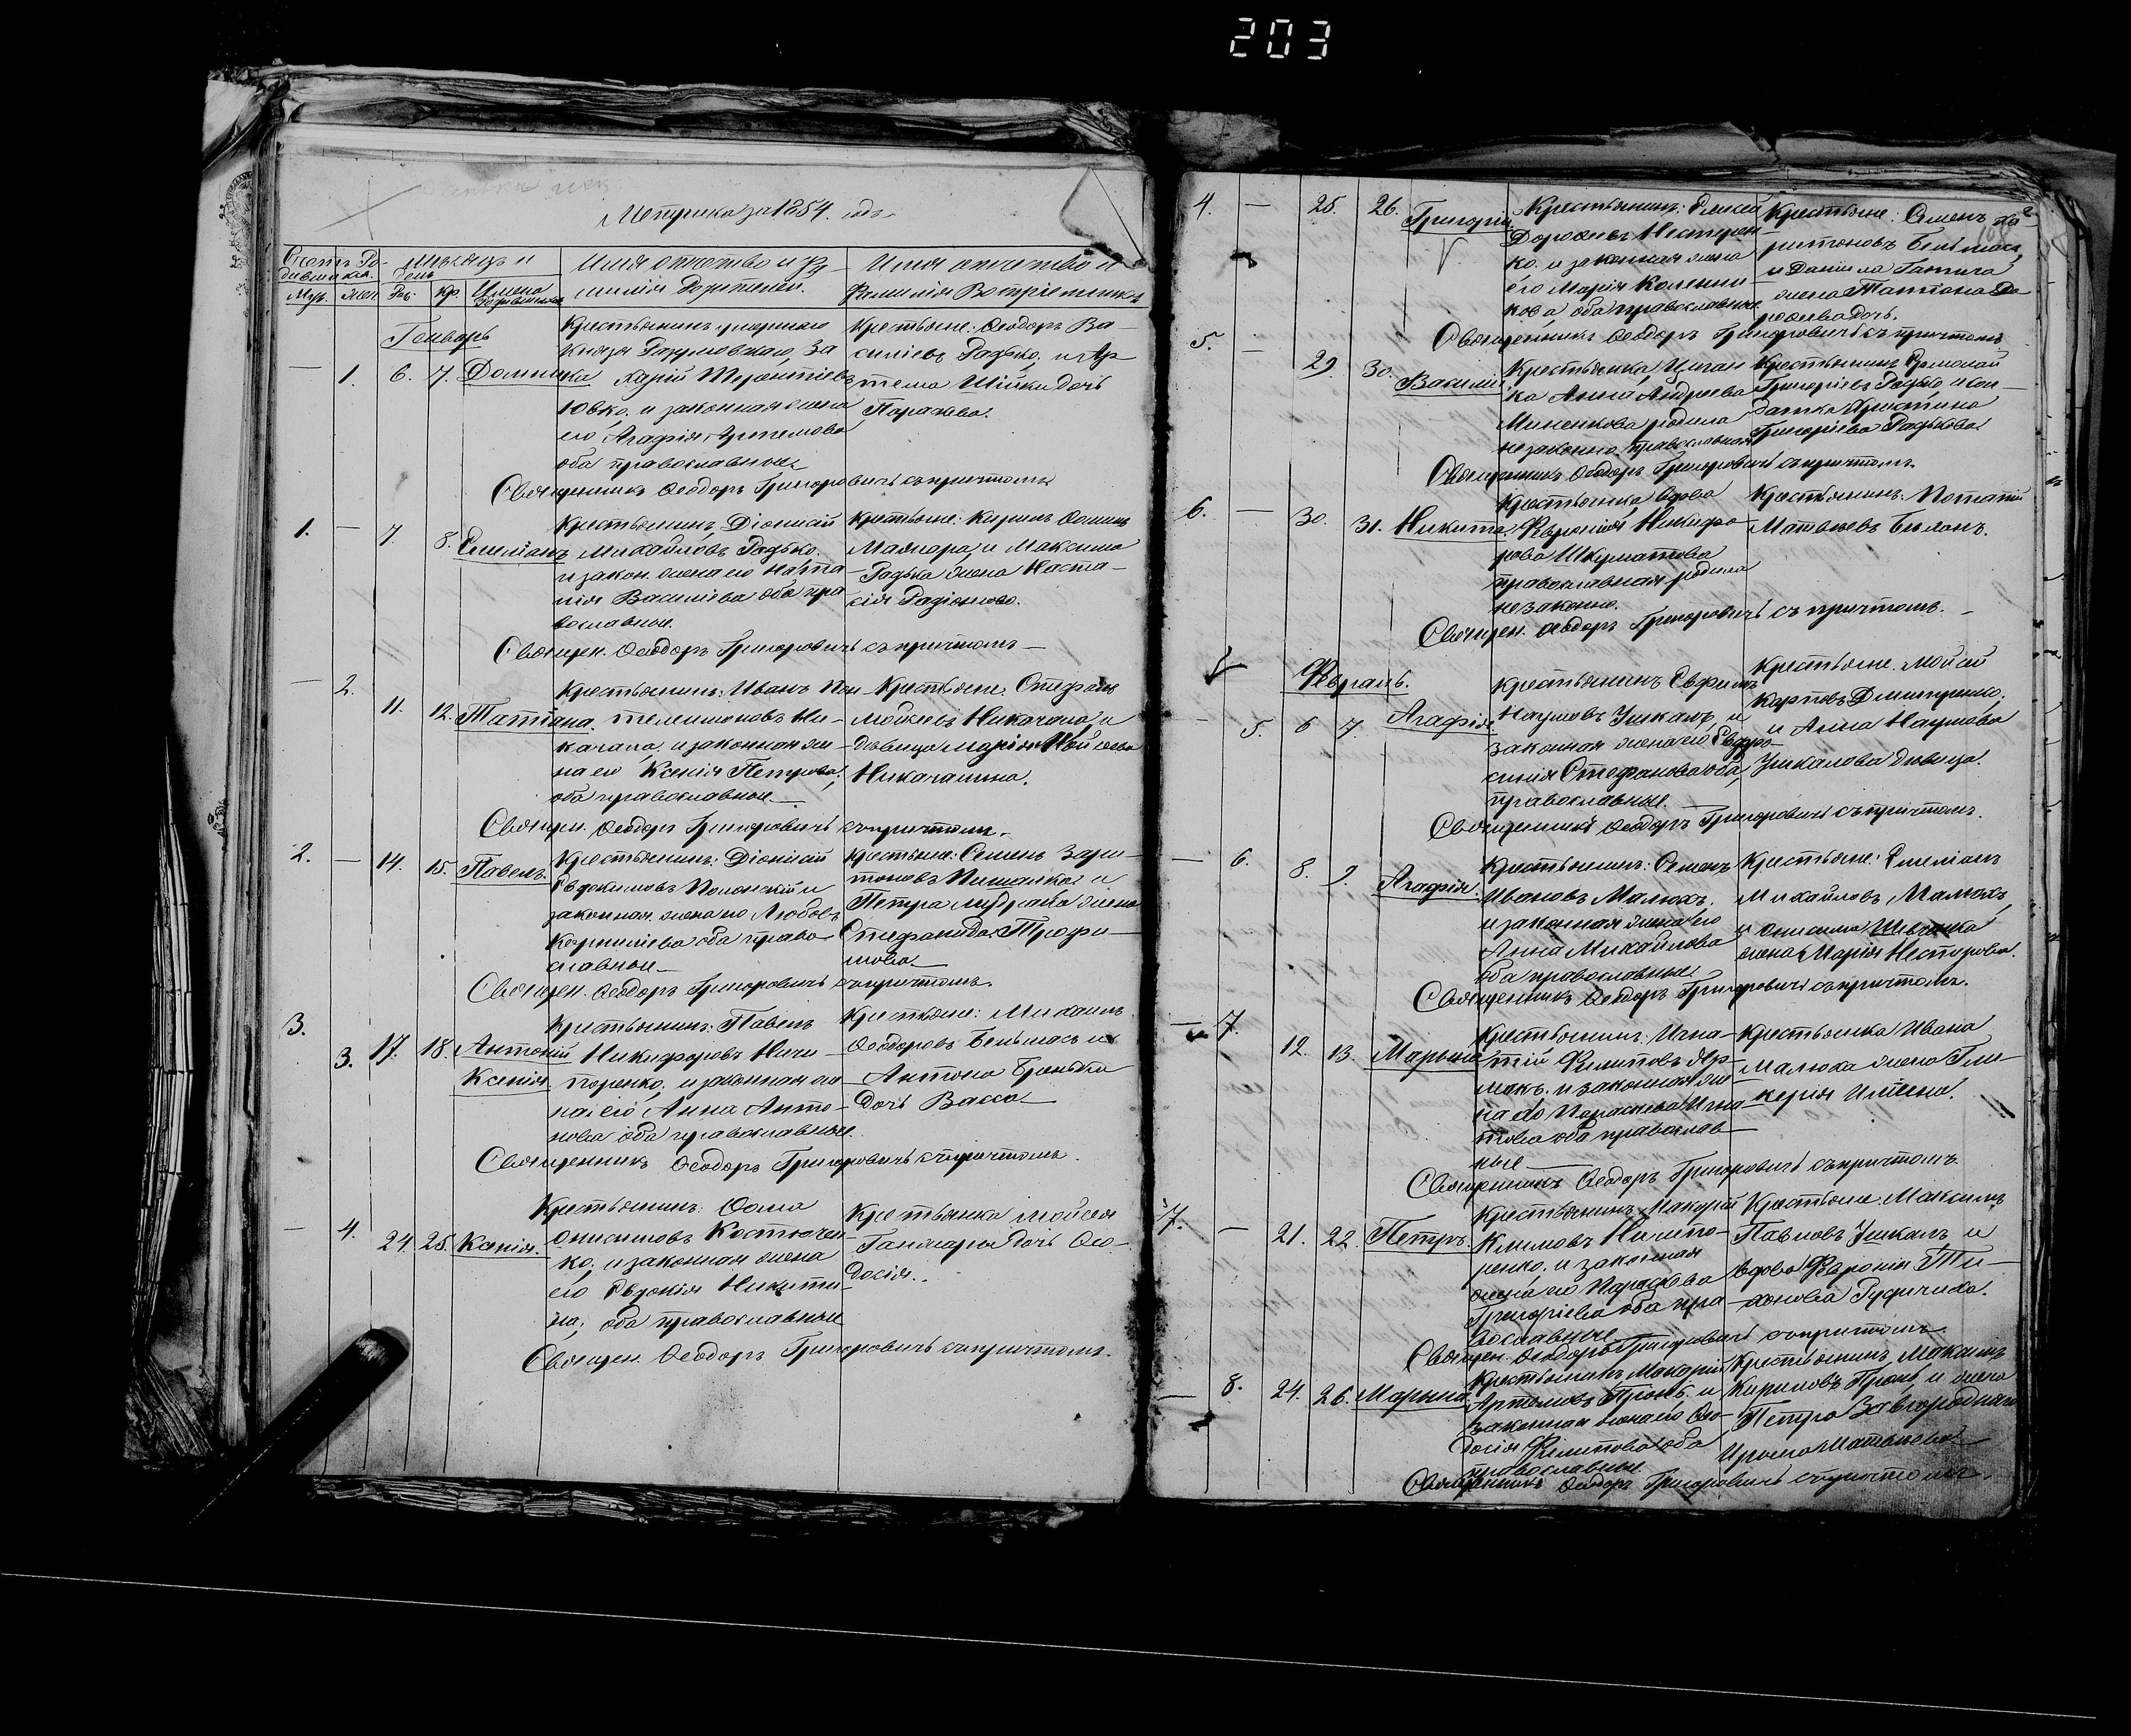 203
Метрика за 1854. годъ.
Счетъ Ро-
дившихся.
Мѣсяцъ и
день
Имя отчество и фа-
милія Родителей.
Имя отчество и
Фамилія Воспріемниковъ
Муж. Жен. Рож. Кр. Имена
Родившихся
Генварь
— 1. 6. 7. Домникія
Князя Разумовскаго За
харій Терентіевъ
Ювко, и законная жена
его Агафія Артемова
оба православные
Крестьяне: Ѳеодоръ Ва-
силіевъ Радько, и Ар
тема Шійки дочь
Параскева.
Священникъ Ѳеодоръ Григоровичъ съ причтомъ
1. — 7. 8. Емеліанъ
Крестьянинъ, Діонисій
Михайловъ Радько.
и закон. жена его Ната
лія Василіева оба пра
вославные.
Крестьяне: Кирилъ
и Максима
Радька жена Наста-
сія Радіонова.
Священ. Ѳеодоръ Григоровичъ съ причтомъ —
— 2. 11. 12. Татіана.
Крестьянинъ: Иванъ Пан-
телеимоновъ Ни-
качала, и законная же-
на его Ксенія Петрова,
оба православные.
Крестьяне: Стефанъ
Моисеевъ Никачала, и
дѣвица Марія Моисеева
Никачалина.
Священ. Ѳеодоръ Григоровичъ съ причтомъ.
2. — 14. 15. Павелъ.
Крестьянинъ: Діонисій
Евдокимовъ Полонскій и
законная жена его Любовь
Корниліева оба право-
славные —
Крестьяне: Семенъ Хари-
тоновъ Пишалка и
Петра жена
Стефанида Трофи-
мова —
Священ. Ѳеодоръ Григоровичъ съ причтомъ.
3. 3. 17. 18. Антоній
Ксенія.
Крестьянинъ: Павелъ
Никифоровъ Ничи-
поренко, и законная же-
на его Анна Анто-
нова оба православные.
Крестьяне: Михаилъ
Ѳеодоровъ Бельмасъ и
Антона
дочь Васса —
Священникъ Ѳеодоръ Григоровичъ съ причтомъ.
— 4. 24. 25. Ксенія.
Крестьянинъ: Ѳома
Онисимовъ Костючен
ко; и законная жена
его Евдокія Никити-
на; оба православные
Крестьянка Мойсея
Ганжары дочь Ѳео-
досія.
Священ. Ѳеодоръ Григоровичъ съ причтомъ.
4. — 25. 26. Григорій
Крестьянинъ: Елисей
Дороѳеевъ Нестерен
ко. и законная жена
его Марія Калени-
кова, оба православные
Крестьяне: Семенъ Ха-
ритоновъ Бельмасъ,
и Даніила
жена Татіана До
роѳеева дочь.
Священникъ Ѳеодоръ Григоровичъ съ причтомъ
5. — 29. 30. Василій
Крестьянка, Цыган
ка Анна Андреева
Миненкова родила
незаконно, православная
Крестьянинъ Ермолай
Григоріевъ Радько и сол-
датка Христина
Григоріева Радькова
Священникъ Ѳеодоръ Григоровичъ съ причтомъ.
6. — 30. 31. Никита.
Крестьянка, вдова
Февронія Никифо-
рова Шкуратова
православная родила
незаконно.
Крестьянинъ: Потапій
Матвѣевъ Биланъ.
Священ. Ѳеодоръ Григоровичъ съ причтомъ. —
Февраль.
— 5. 6 7. Агафія
Крестьянинъ Евфимъ
Наумовъ Ушкалъ, и
законная жена его Евфро-
синія Стефанова оба,
православные. —
Крестьяне. Мойсей
Карповъ Дмитренко,
и Анна Наумова
Ушкалова дѣвица.
Священникъ Ѳеодоръ Григоровичъ съ причтомъ.
— 6. 8. 9. Агафія.
Крестьянинъ: Семенъ
Ивановъ Малюкъ.
и законная жена его
Анна Михайлова
оба православные.
Крестьяне: Емеліанъ
Михайловъ, Малюкъ,
и Онисима Шевченка
жена Марія Несторова.
Священникъ Ѳеодоръ Григоровичъ съ причтомъ.
— 7. 12. 13. Марина
Крестьянинъ: Игна-
тій Филиповъ Яр-
макъ. и законная же
на его Параскева Игна-
това оба православ-
ные —
Крестьянка Ивана
Малюка жена Гли-
керія
Священникъ Ѳеодоръ Григоровичъ съ причтомъ.
7. — 21. 22. Петръ.
Крестьянинъ Макарій
Климовъ Ничипо-
ренко. и законная
жена его Параскева
Григоріева оба пра-
вославные
Крестьяне. Максимъ
Павловъ Ушкалъ и
вдова Февронія Ти-
хонова
Священ. Ѳеодоръ Григоровичъ съ причтомъ
— 8. 24. 26. Марина
Крестьянинъ Макарій
Артемовъ Пронь. и
законная жена его Ѳео-
досія Филипова оба
православные.
Крестьянинъ,
Кириловъ Пронь, и жена
Петра Завгороднаго
Ирина Матвѣева —
Священникъ Ѳеодоръ Григоровичъ съ причтомъ.